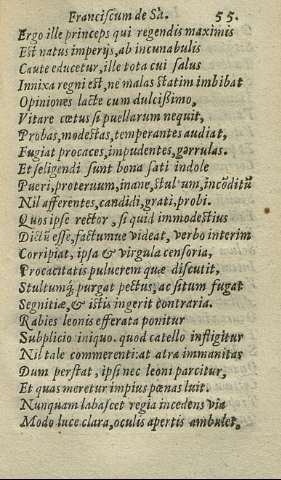 Franciscum de Sa. 55.
Ergo ille princeps qui regendis maximis
Est natus imperijs, ab incunabulis
Caute educetur, ille tota cui salus
Innixa regni est, ne malas statim imbibat
Opiniones lacte cum dulcissimo,
Vitare cœtus si puellarum nequit,
Probas, modestas, temperantes audiat,
Fugiat procaces, impudentes, garrulas.
Et seligendi sunt bona sati indole
Pueri, proteruum, inane, stultum, incōditū
Nil afferentes, candidi, grati, probi.
Quos ipse rector, si quid immodestius
Dictū esse, factumue videat, verbo interim
Corripiat, ipsa & virgula censoria,
Procacitatis puluerem quæ discutit,
Stultumq́; purgat pectus, ac situm fugat
Segnitiæ, & istis ingerit contraria.
Rabies leonis efferata ponitur
Supplicio iniquo. quod catello infligitur
Nil tale commerenti: at atra immanitas
Dum perstat, ipsi nec leoni parcitur,
Et quas meretur impius pœnas luit.
Nunquam labascet regia incedens via
Modo luce clara, oculis apertis ambulet,